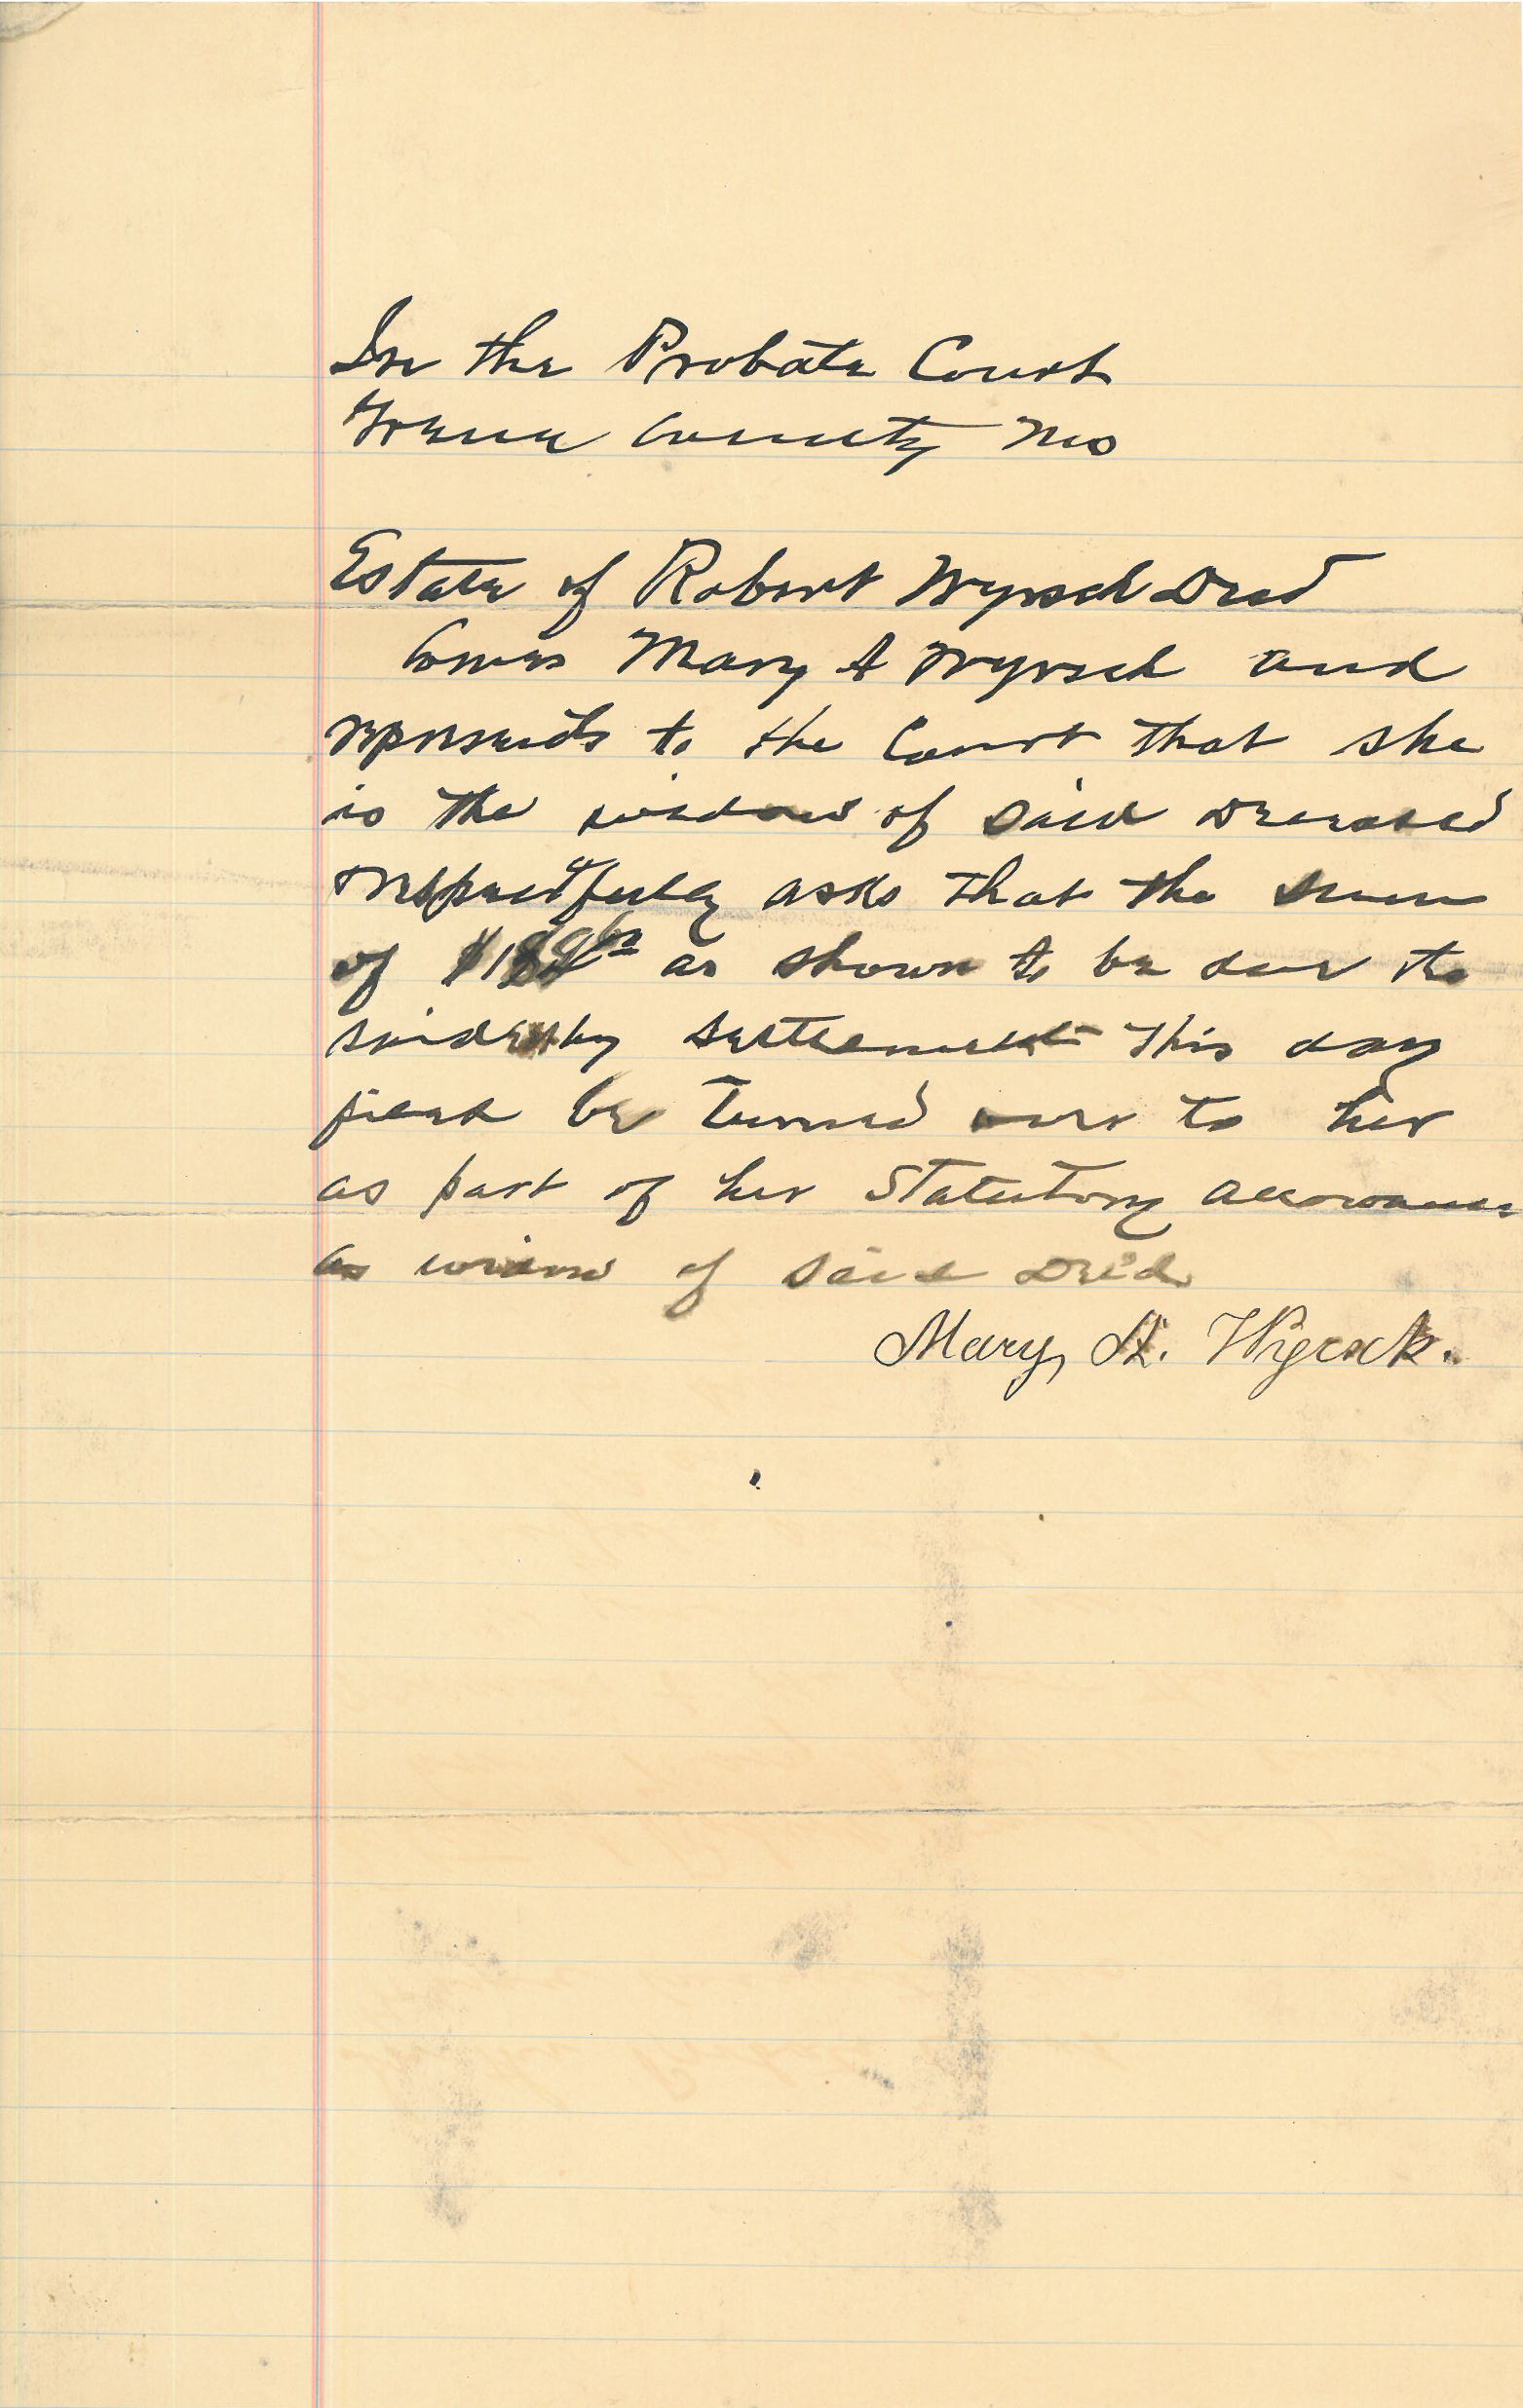 In the Probate Court
Greene County Mo
Estate of Robert Wyrsch Decd
Comes Mary A Wyrsch and
represents to the Court that she
is the widow of said Deceased
respectfully asks that the sum
of as shown to be due the
said by settlement this day
filed be turned over to her
as part of her Statutory allowance
as widow of said Decd
Mary A. Wyrsch.